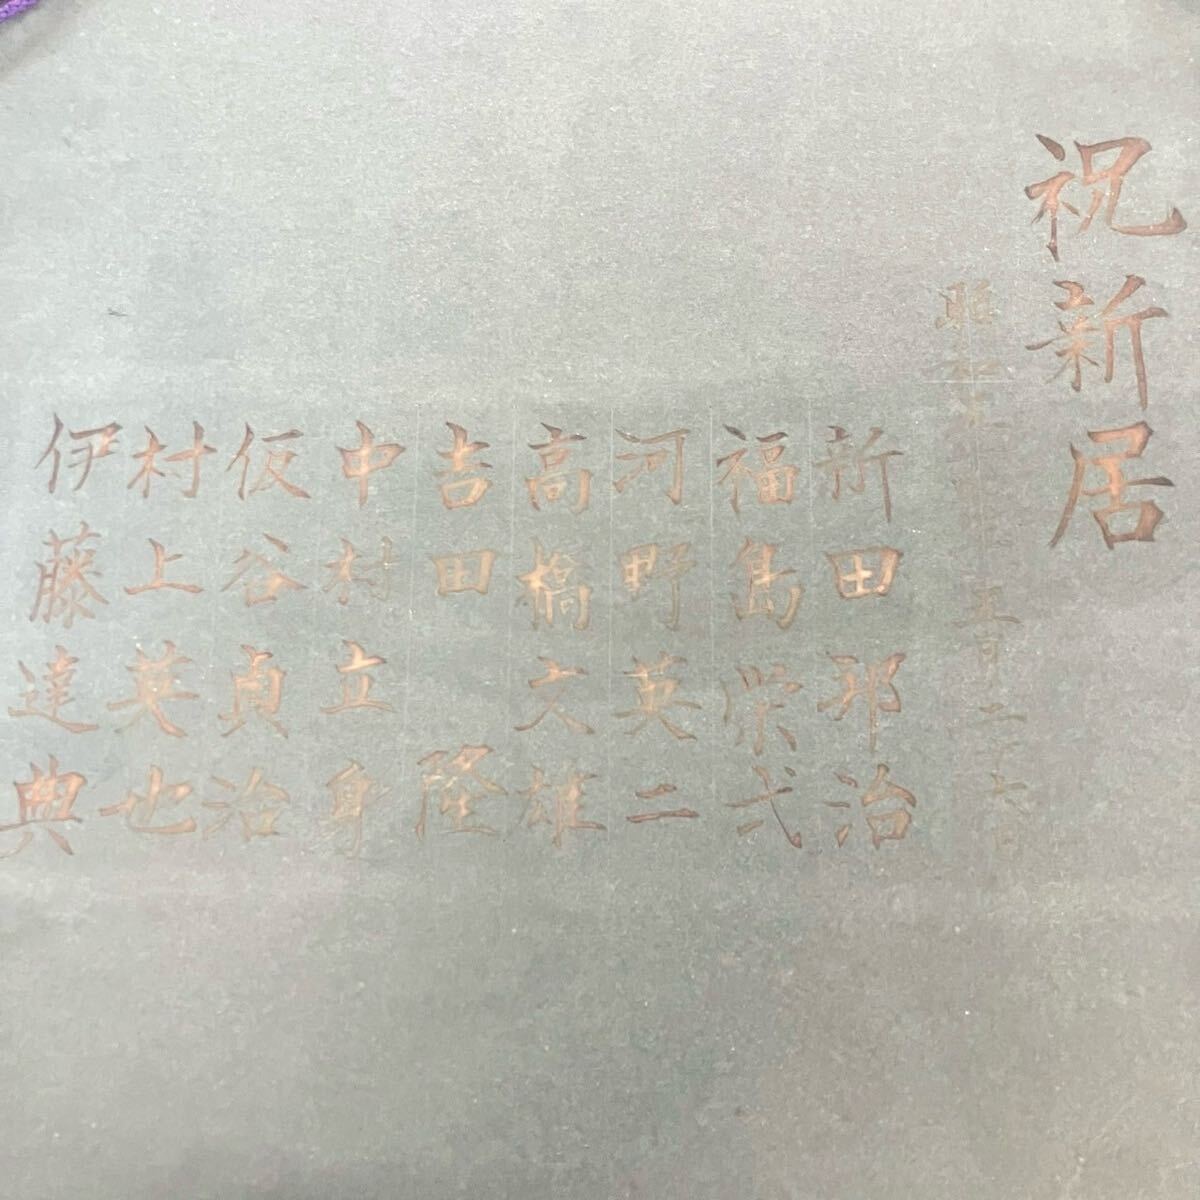 祝新居
昭和五十 年五月二十六日
新田邦治
福島栄弍
河野英二
高橋文雄
吉田 隆
中村立身
仮谷貞治
村上英也
伊藤達典